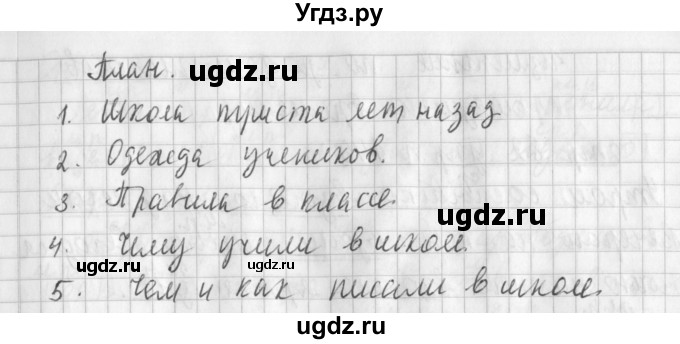 Угдз.ру
План.
ugdz.ru
1. Школа триста лет назад
2. Одежда учеников.
3. Правила в классе.
ugdz.ru
4. Чему учили в школе.
ugdz.ru
ugdz.ru
5. Чем и как писали в школе.
ugdz.ru